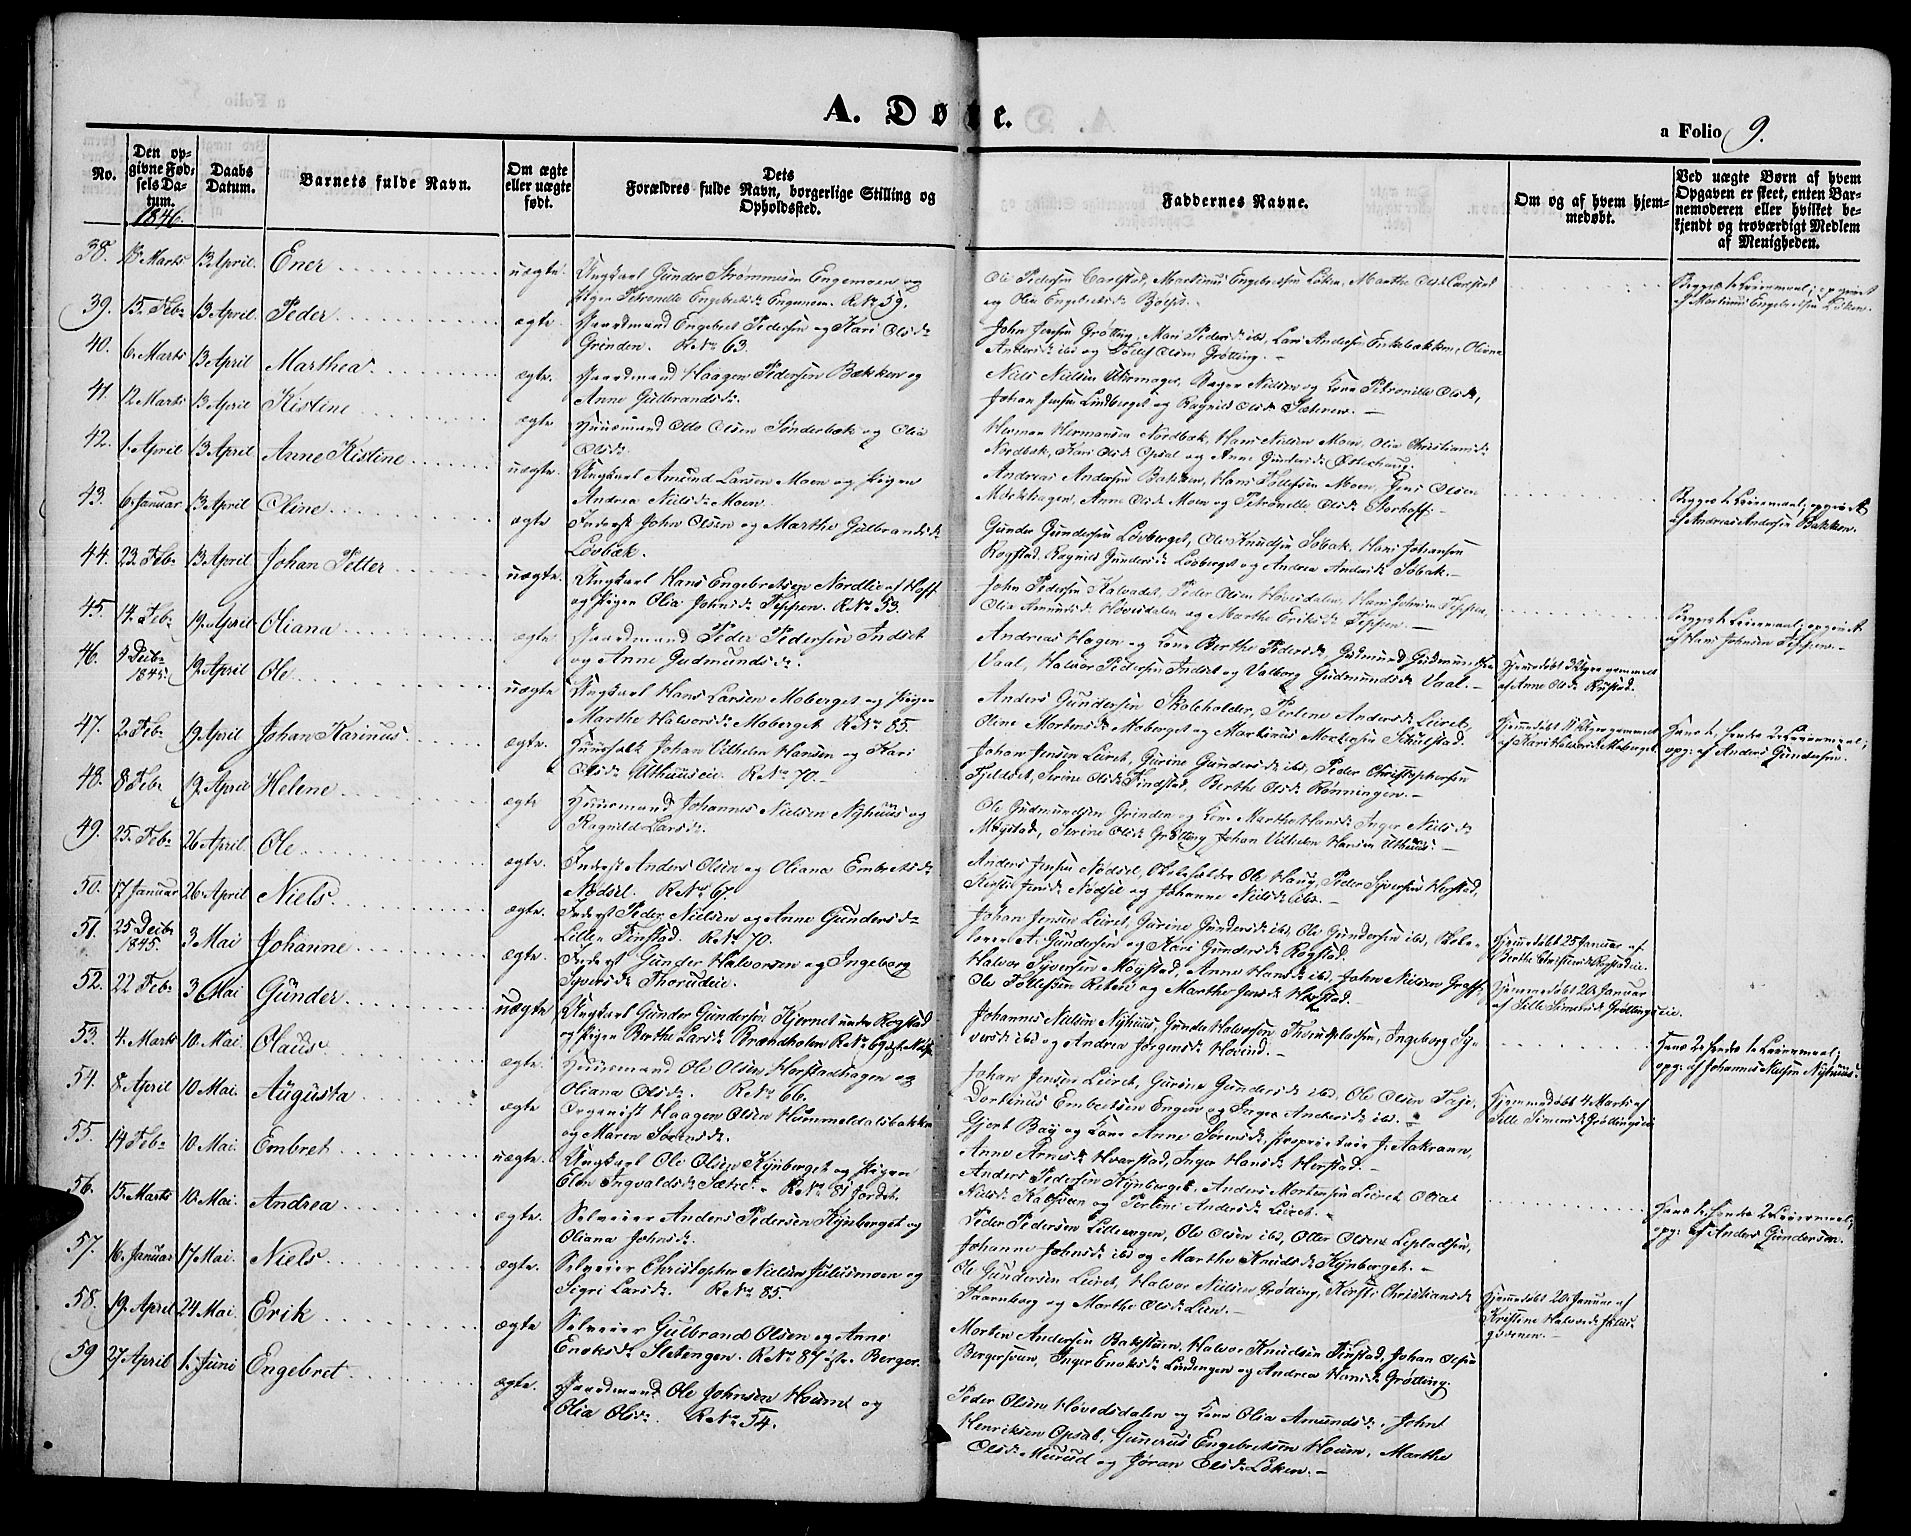 A. Døbte.
a Folio 9.
No.
Den opgivne Fødsels Datum.
Daabs Datum.
Barnets fulde Navn.
Om ægte eller uægte født.
Dets Forældres fulde Navn, borgerlige Stilling og Opholdssted.
Faddernes Navne.
Om og af hvem hjemmedøbt.
Ved uægte Børn af hvem Opgaven er skeet, enten Barnemoderen eller hvilket bekjendt og troværdigt Medlem af Menigheden.
1846.
38. 13 Marts 13 April. Ener uægte. Ungkarl Gunder Engemoen og
Pigen Petronelle Engebretsd. Engemoen. R.No 59.
Ole Pedersen Carlstad, Martinus Engebretsen Løken, Marthe Olsd. Carlstad
og Olia Engebretsd.
Begges 1ste Leiermaal; opgivet
af Martinus Engebretsen Løken.
39. 15. Feb. 13 April. Peder ægte. Gaardmand Engebret Pedersen og Kari Olsd.
Grinden. R.No 63.
John Jensen Grøtting, Mari Pedersd. ibd, Lars Andersen Enkebakken, Oliane
Andersd. ibd og Tollef Olsen Grøtting.
40. 6. Marts 13 April Marthea ægte. Gaardmand Haagen Pedersen Bækken og
Anne Gulbrandsd.
Niels Nielsen Uhrmager, Nielsen og Kone Petronille Olsd.,
Johan Jensen Lindberget og Ragnild Olsd. Sæteren.
41. 12 Marts 13 April Kistine ægte Huusmand Otto Olsen Sønderbæk og Olia
Olsd.
Herman Hermansen Nordbæk, Hans Nielsen Moen, Olia Christiansd.
Nordbæk, Kari Olsd. Opsal og Anne Gundersd. Østerhaug.
42. 1. April 13 April Anne Kistine uægte. Ungkarl Amund Larsen Moen og Pigen
Andrea Nielsd. Moen.
Andreas Andersen Bakken, Hans Tollefsen Moen, Jens Olsen
Melkhagen, Anne Olsd. Moen og Petronelle Olsd. Storhoff.
Begges 1ste Leiermaal; opgivet
af Andreas Andersen Bakken.
43. 6. Januar 13 April Oline ægte Inderst John Olsen og Marthe Gulbrandsd.
Løvbæk.
Gunder Gundersen Lovberget, Ole Knudsen Søbak, Hans Johansen
Rogstad, Ragnild Gundersd. Lovberget og Andrea Andersd. Søbak.
44. 23. Feb. 13 April Johan Petter uægte. Ungkarl Hans Engebretsen Nordlie af Hoff
og Pigen Olia Johnsd. Teppen. R.No 53.
John Pedersen Kalvadet, Peder Olsen Hovedsdalen, Hans Johnsen Teppen,
Olia Amundsd. Hovedsdalen og Marthe Eriksd. Teppen.
Begges 1ste Leiermaal; opgivet
af Hans Johnsen Teppen.
45. 14. Feb. 19. April Oliana ægte Gaardmand Peder Pedersen Indset
og Anne Gudmundsd.
Andreas Hagen og Kone Berthe Pedersd., Gudmund Gudmundsen
Vaal, Halvor Pedersen Indset og Valborg Gudmundsd. Vaal.
46. Decbr 1845. 19. April Ole uægte Ungkarl Hans Larsen Moberget og Pigen
Marthe Halvorsd. Moberget R.No 85.
Anders Gundersen Skoleholder, Perlene Andersd. Leiret,
Oline Mortensd. Moberget og Martinus Mortensen Schulstad.
Hjemmedøbt 3 Uger gammel
af Anne Olsd. Rustad.
47. 2. Feb. 19 April Johan Karinus ægte. Huusfolk Johan Vilhelm Hansen og Kari
Olsd. Uthuuseie. R.No 70.
Johan Jensen Leiret, Gurine Gundersd. ibd, Peder Christophersen
Fjeldset, Serine Olsd. Findstad, Berthe Olsd. Rønningen.
Hjemmedøbt Uger gammel
af Kari Halvorsd. Moberget.
Hans 1ste, hendes 2det Leiermaal;
opg: af Anders Gundersen.
48. 8 Feb. 19. April Helene ægte Huusmand Johannes Nielsen Nyhuus og
Ragnild Larsd.
Ole Gudmundsen Grinden og Kone Marthe Hansd. Inger Nielsd.
Møystad, Serine Olsd. Grøtting, Johan Vilhelm Hansen Uthuus.
49. 25. Feb. 26 April Ole ægte. Inderst Anders Olsen og Oliana Embretsd.
Nødsel. R.No 67.
Anders Jensen Nødsel, Skoleholder Ole Haug, Peder Syversen Herstad,
Kirsti Jensd. Nødsel og Johanne Nielsd. ibd.
50. 17 Januar 26 April Niels ægte. Inderst Peder Nielsen og Anne Gundersd.
Lille Finstad. R.No 70.
Johan Jensen Leiret, Gurine Gundersd. ibd, Ole Gundersen ibd, Skole-
lærer A. Gundersen og Kari Gundersd. Rogstad.
51. 25 Decbr 1845. 3 Mai Johanne ægte. Inderst Gunder Halvorsen og Ingeborg
Syversd. Thorudeie.
Halvor Syversen Møystad, Anne Hansd. ibd, John Nielsen Graff,
Ole Tollefsen Reberg og Marthe Jensd. Herstad.
Hjemmedøbt 25 Januar af
Berthe Christensd. Rogstadeie.
52. 22 Feb. 3 Mai Gunder uægte Ungkarl Gunder Gundersen Kjernet under Rogstad
og Pigen Berthe Larsd. Brændholen R.No 69
Johannes Nielsen Nyhuus, Gunder Halvorsen Thorudpladsen, Ingeborg Sy-
versd. ibd og Andrea Jørgensd. Hovind.
Hjemmedøbt 20. Januar
af Sille Simensd. Grøttingseie.
53. 4. Marts 10. Mai Olaus ægte. Huusmand Ole Olsen Herstadhagen og
Oliana Olsd. R.No 66.
Johan Jensen Leiret, Gurine Gundersd. ibd, Ole Olsen
Dortinus Embretsen Engen og Inger Andersd. ibd.
Hans 2det, hendes 1ste Leiermaal;
opg: af Johannes Nielsen Nyhuus.
54. 8 April 10 Mai. Augusta ægte Organist Haagen Olsen Hummeldalsbakken
og Maren Sørensd.
Gjert Bay og Kone Anne Sørensd., Proprietair J. Aakrann,
Anne Arnesd. Hvarstad, Inger Hansd. Herstad.
Hjemmedøbt 4. Marts af
Sille Simensd. Grøttingseie
55. 14 Feb. 10 Mai. Embret uægte. Ungkarl Ole Olsen Kynberget og Pigen
Elen Ingvaldsd. Sætre. R.No 81 Jordet.
Anders Pedersen Kynberget, Anders Mortensen Leiret, Olia
Nielsd. Kalsveen og Perlene Andersd. Leiret.
56. 15. Marts 10. Mai. Andrea ægte. Selveier Anders Pedersen Kynberget og
Oliana Johnsd.
Peder Pedersen Lilleengen, Ole Olsen ibd, Otter Olsen
Johanne Johnsd. ibd og Marthe Knudsd. Kynberget.
Hans 1ste, hendes 2det Leiermaal;
opg: af Anders Gundersen.
57. 16. Januar 17 Mai. Niels ægte. Selveier Christopher Nielsen Julusmoen og
Sigri Larsd. R.No 85.
Ole Gundersen Leiret, Halvor Nielsen Grøtting, Kirsti Christiansd.
Taarnborg og Marthe Olsd. Lien.
58. 19. April 24 Mai. Erik ægte Selveier Gulbrand Olsen og Anne
Enoksd. Sletengen. R.No 84 østre Berger.
Morten Andersen Bakstuen, Halvor Knudsen Finstad, Johan Olsen
Bergersveen, Inger Enoksd. Lundengen og Andrea Hansd. Grøtting.
Hjemmedøbt 20. Januar af
Kristine Halvorsd. Julus-
59 27 April 1. Juni Engebret ægte. Gaardmand Ole Johnsen Houm og
Olia Olsd. R.No 54.
Peder Olsen Hovedsdalen og Kone Olia Amundsd., John
Henriksen Opsal, Gunerus Engebretsen Houm, Marthe
Olsd. Murud og Jøran Olsd. Løken.